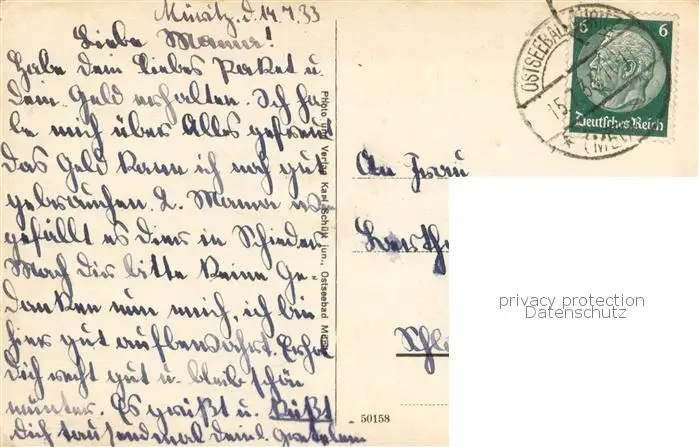 Müritz, d. 14.7.33
Liebe Mama!
Habe dein liebes Paket u.
dein Geld erhalten. Ich ha-
be mich über Alles gefreut
Das Geld kann ich noch gut
gebrauchen. L. Mama wo-
gefällt es dier in Schieder
Mach dir bitte keine Ge-
danken um mich, ich bin
hier gut aufbewahrt. Erhol
dich recht gut u. bleib schön
munter. Es grüßt u. Küßt
dich tausendmal deine Gretelein
Photo und Verlag Karl Schütt jun., Ostseebad Müritz
OSTSEEBAD
15.
(MECK
6 6
Deutsches Reich
An Frau
Berta
Schl
50158
privacy protection
Datenschutz